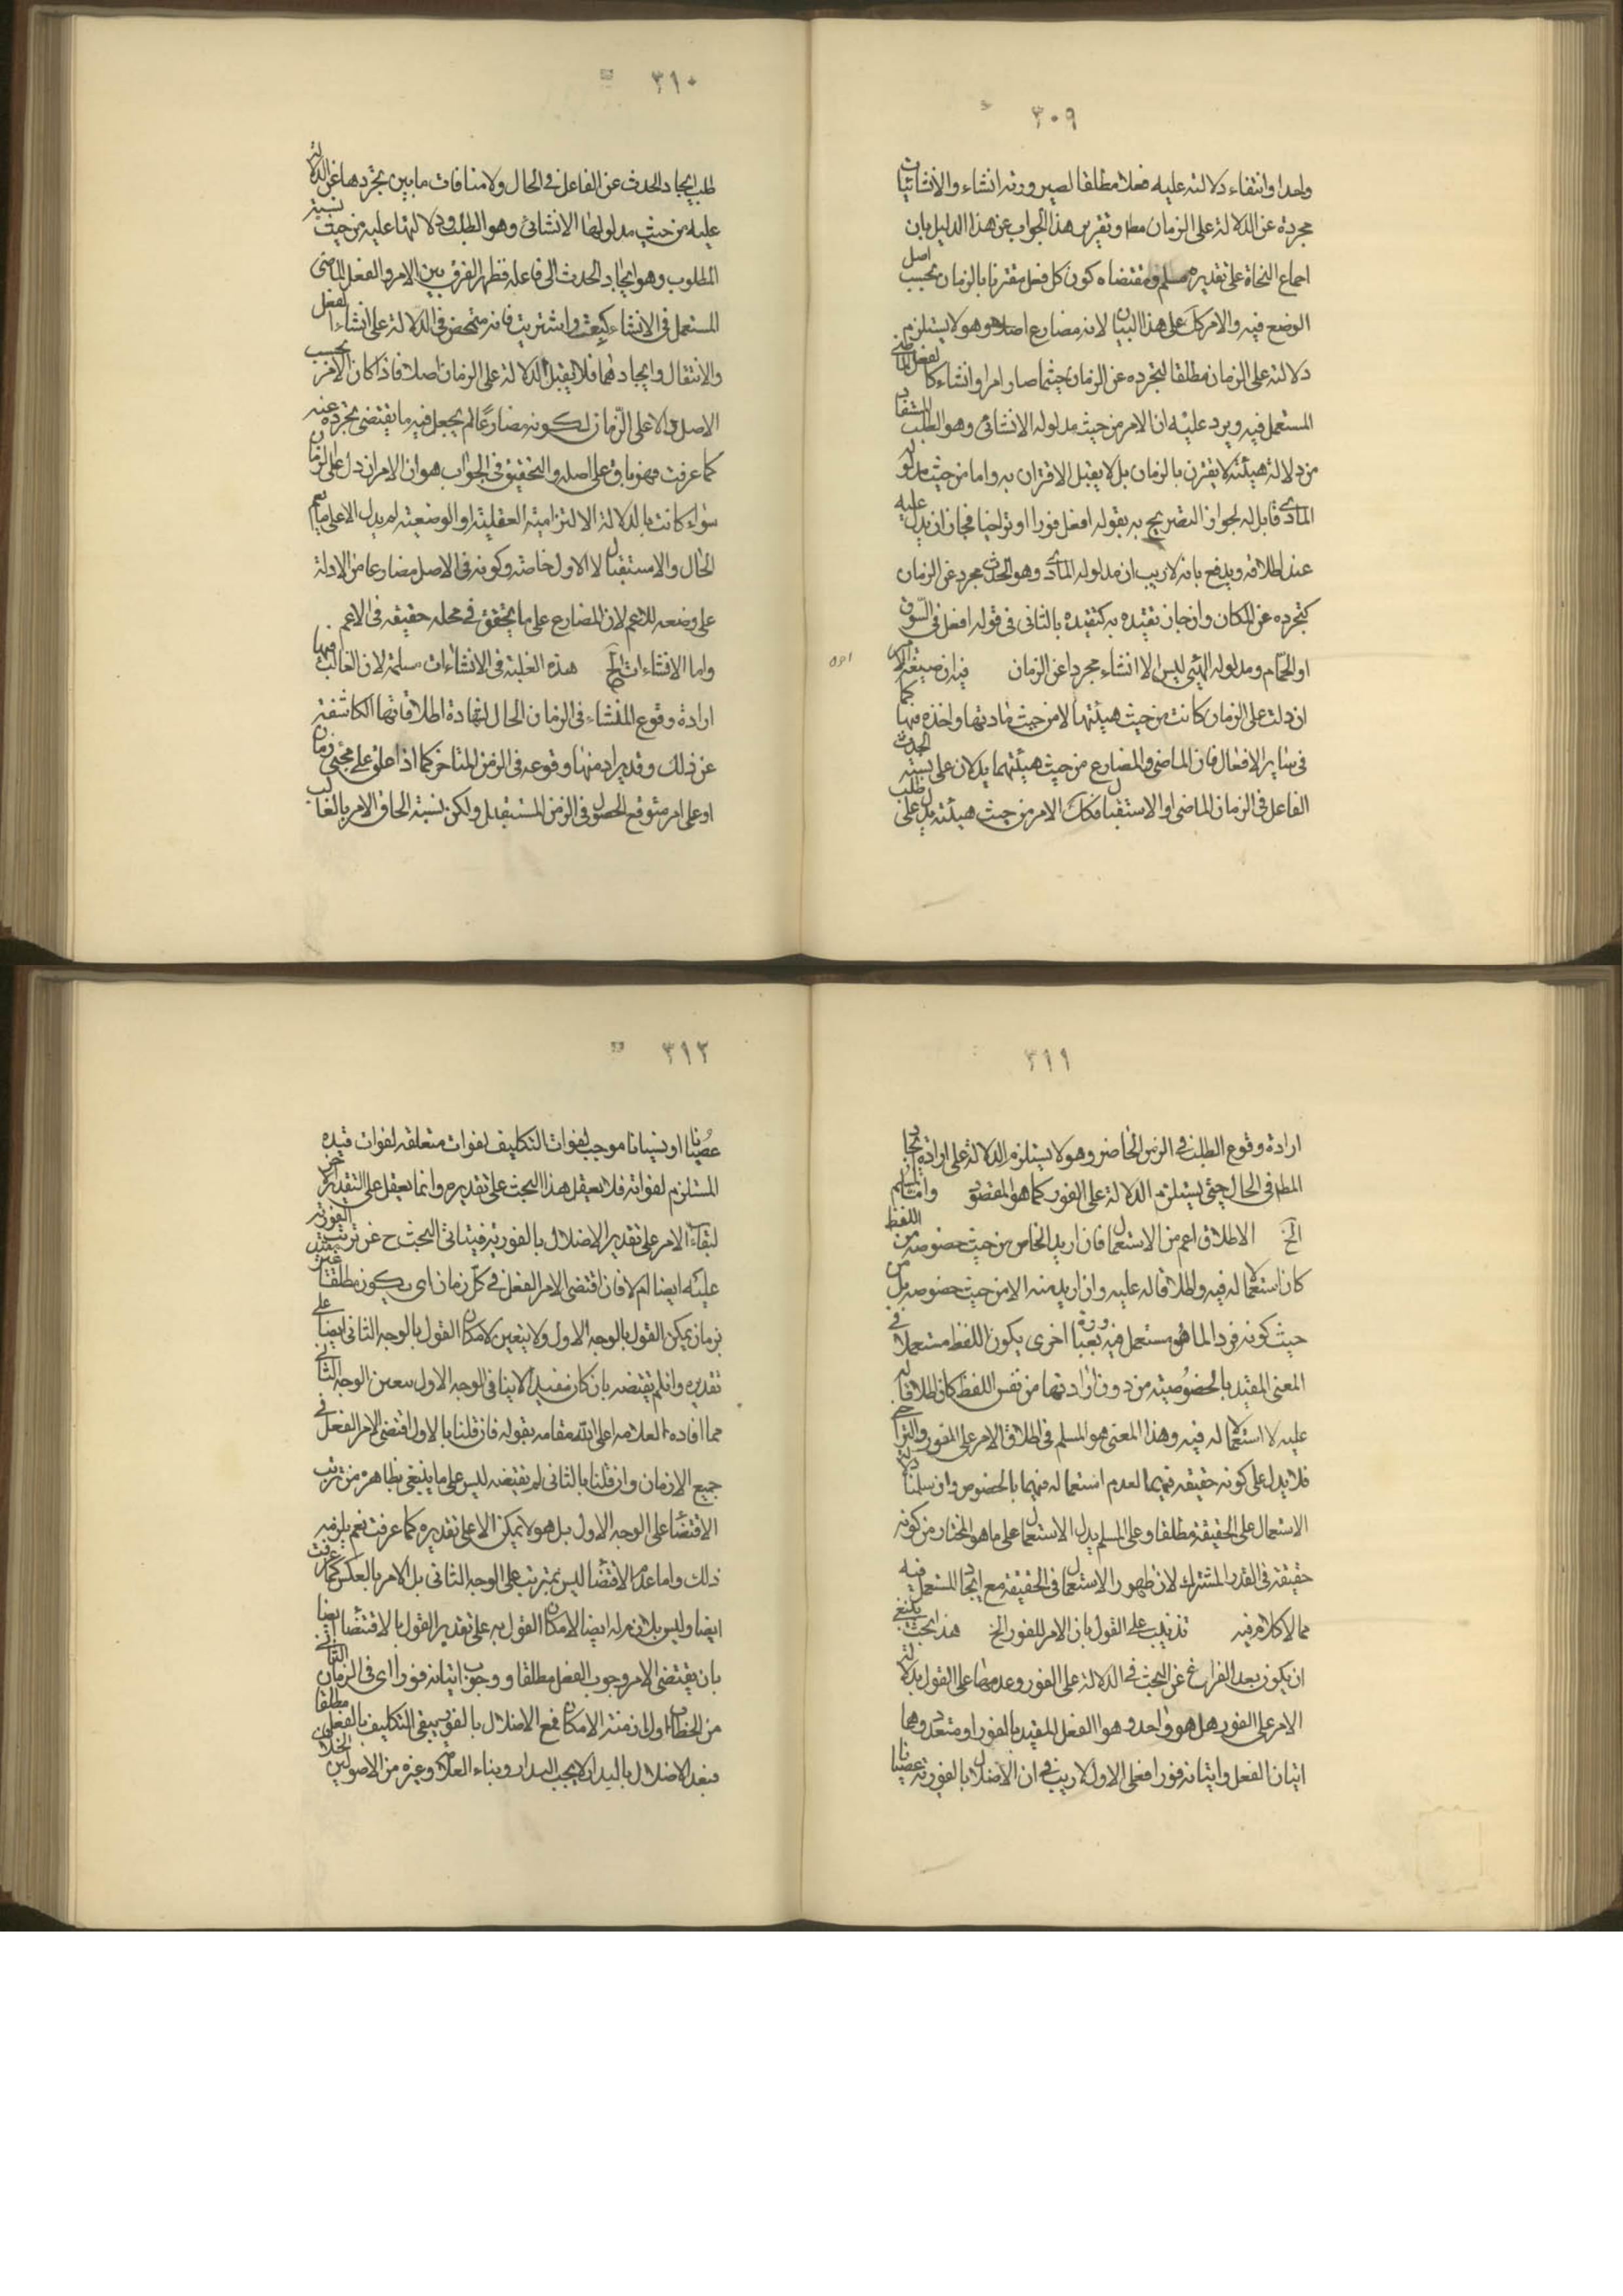 ٣٠٩
واحدا وانتفاء دلالته عليه فعلا مطلقا لصيرورته انشاء والانشائيات
مجردة عن الدلالة على الزمان مط وتقرير هذا الجواب عن هذا الدليل بان
اجماع النحاة على تقديره مسلم ومقتضاه كون كل فعل مقترنا بالزمان بحسب اصل
الوضع فيه والامر كك على هذا البيان لانه مضارع اصلا وهو لا يستلزم
دلالته على الزمان مطلقا لتجرده عن الزمان حيثما صار امرا وانشاء كالفعل الماضى
المستعمل فيه ويرد عليه ان الامر من حيث مدلوله الانشائى وهو الطلب المستفاد
من دلالة هيئته لا يقترن بالزمان بل لا يقبل الاقتران به واما من حيث مدلوله
المادى قابل له لجواز التصريح به بقوله افعل فورا او تراخيا فجاز ان يدل عليه
عند اطلاقه ويدفع بانه لا ريب ان مدلوله المادى وهو الحدث مجرد عن الزمان
كتجرده عن المكان وان جاز تقيده به كتقيده بالثانى فى قوله افعل فى السوق
او الحمام ومدلوله الهيئى ليس الا انشاء مجردا عن الزمان فيه ان صيغة الامر
ان دلت على الزمان كانت من حيث هيئتها لا من حيث مادتها واخذه فيها كما
فى ساير الافعال فان الماضى والمضارع من حيث هيئتهما يدلان على نسبة الحدث
الفاعل فى الزمان الماضى او الاستقبال فكك الامر من حيث هيئته يدل على طلب
٣١٠
طلب ايجاد الحدث عن الفاعل فى الحال ولا منافات ما بين تجردها عن الدلالة
عليه من حيث مدلولها الانشائى وهو الطلب ودلالتها عليه من حيث نسبة
المطلوب وهو ايجاد الحدث الى فاعله فظهر الفرق بين الامر والفعل الماضى
المستعمل فى الانشاء كبعت واشتريت فانه متمحض فى الدلالة على انشاء الفعل
والانتقال وايجادهما فلا يقبل الدلالة على الزمان اصلا فاذا كان الامر بحسب
الاصل دالا على الزمان لكونه مضارعا لم يجعل فيه ما يقتضى تجرده عنه
كما عرفت فهو باق على اصله والتحقيق فى الجواب هو ان الامر ان دل على الزمان
سواء كانت بالدلالة الالتزامية العقلية او الوضعية لم يدل الا على ما يعم
الحال والاستقبال لا الاول خاصة وكونه فى الاصل مضارعا من الادلة
على وضعه للاعم لان المضارع على ما يحقق فى محله حقيقه فى الاعم
واما الانشاءات الخ هذه الغلبة فى الانشاءات مسلمة لان الغالب فيها
ارادة وقوع المنشاء فى الزمان الحال لشهادة اطلاقاتها الكاشفة
عن ذلك وقد يراد منها وقوعه فى الزمن المتاخر كما اذا علق على مجئ زمان
او على امر متوقع الحصول فى الزمن المستقبل ولكن نسبة الحاق الامر بالغالب
٣١١
ارادة وقوع الطلب فى الزمن الحاضر وهو لا يستلزم الدلالة على ارادة ايجاد
المط فى الحال حتى يستلزم الدلالة على الفور كما هو المقصود وانما المسلم
الخ الاطلاق اعم من الاستعمال فان اريد الخاص من حيث خصوصه من اللفظ
كان استعمالا له فيه واطلاقا له عليه وان اريد منه الا من حيث خصوصه بل من
حيث كونه فردا لما هو مستعمل فيه وبعبارة اخرى يكون اللفظ مستعملا فى
المعنى المقيد بالخصوصية من دون ارادتها من نفس اللفظ كان اطلاقا له
عليه لا استعمالا له فيه وهذا المعنى هو المسلم فى اطلاق الامر على الفور والتراخى
فلا يدل على كونه حقيقه فيهما لعدم استعماله فيهما بالخصوص وان سلمنا دلالة
الاستعمال على الحقيقة مطلقا وعلى المسلم يدل الاستعمال على ما هو المختار من كونه
حقيقة فى القدر المشترك لان ظهور الاستعمال فى الحقيقة مع ايجاد المستعمل فيه
مما لا كلام فيه تذنيب على القول بان الامر للفور الخ هذا بحث ينبغى
ان يكون بعد الفراغ عن البحث فى الدلالة على الفور وعدمها على القول بدلالة
الامر على الفور هل هو واحد وهو الفعل المقيد بالفور او متعدد وهما
اتيان الفعل واتيانه فورا فعلى الاول لا ريب فى ان الاخلال بالفورية عصيانا
٣١٢
عصيانا او نسيانا موجب لفوات التكليف لفوات متعلقه لفوات قيده
المستلزم لفواته فلا يعقل هذا البحث على تقديره وانما يعقل على التقدير الاخر
لبقاء الامر على تقدير الاخلال بالفورية فيتاتى البحث ح عن ترتيب الفورية
عليه ايضا ام لا فان اقتضى الامر الفعل فى كل زمان اى يكون مطلقا غير مقيد
بزمان يمكن القول بالوجه الاول ولا يتعين لامكان القول بالوجه الثانى ايضا على
تقديره وان لم يقتضه بان كان مفيدا لاينافى الوجه الاول تعين الوجه الثانى
مما افاده العلامه اعلى الله مقامه بقوله فان قلنا بالاول اقتضى الامر الفعل فى
جميع الازمان وان قلنا بالثانى لم يقتضه ليس على ما ينبغى بظاهره من ترتب
الاقتضاء على الوجه الاول بل هو لا يمكن الا على تقديره كما عرفت نعم يلزمه
ذلك واما عدم الاقتضاء ليس بمترتب على الوجه الثانى بل الامر بالعكس كما عرفت
ايضا وليس بلازم له ايضا لامكان القول به على تقدير القول بالاقتضاء ايضا
بان يقتضى الامر وجوب الفعل مطلقا ووجوب اتيانه فورا اى فى الزمان الثانى
من الخطاب او ازمنة الامكان فمع الاخلال بالفور يبقى التكليف بالفعل مطلقا
فبعد الاخلال بالبدار لا يجب البدار وبناء العلامة وغيره من الاصوليين الخلاف